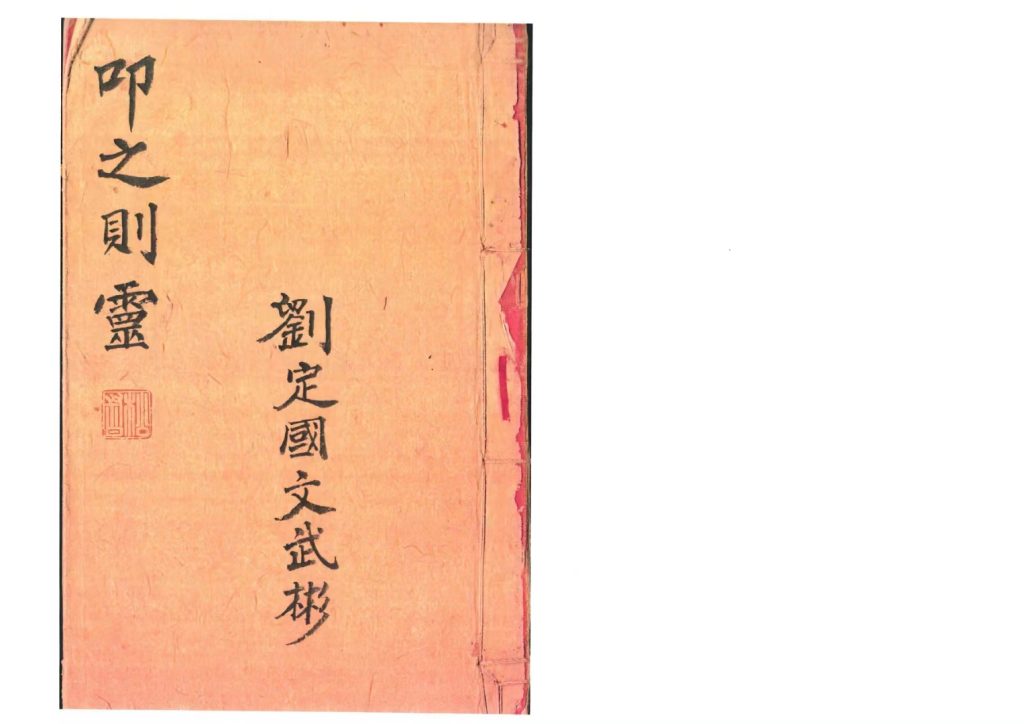 叩之則靈
劉定國文武彬